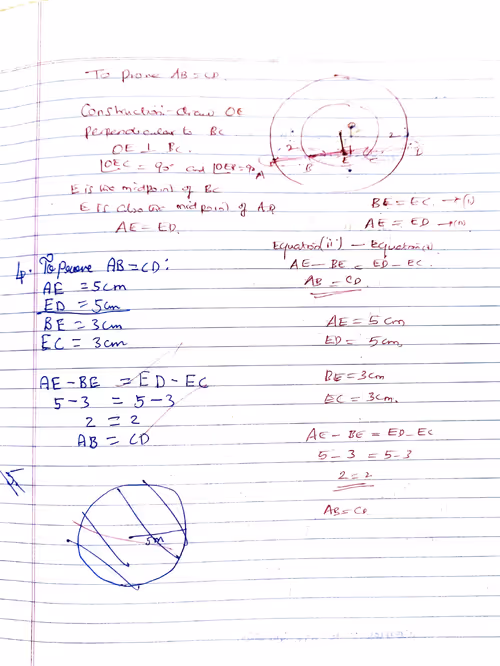 To prove AB = CD.
Construction - draw OE
perpendicular to BC
OE ⊥ BC.
∠OEC = 90° and ∠OEB = 90°
E is the midpoint of BC
E is also the midpoint of AD
AE = ED.
2 2
A B E C D
BE = EC → (i)
AE = ED → (ii)
Equation (ii) - Equation (i)
AE - BE = ED - EC
AB = CD
AE = 5 cm
ED = 5 cm,
BE = 3cm
EC = 3cm.
AE - BE = ED - EC
5 - 3 = 5 - 3
2 = 2
AB = CD
4. To Parove AB = CD:
AE = 5cm
ED = 5cm
BE = 3cm
EC = 3cm
AE - BE = ED - EC
5 - 3 = 5 - 3
2 = 2
AB = CD
5m